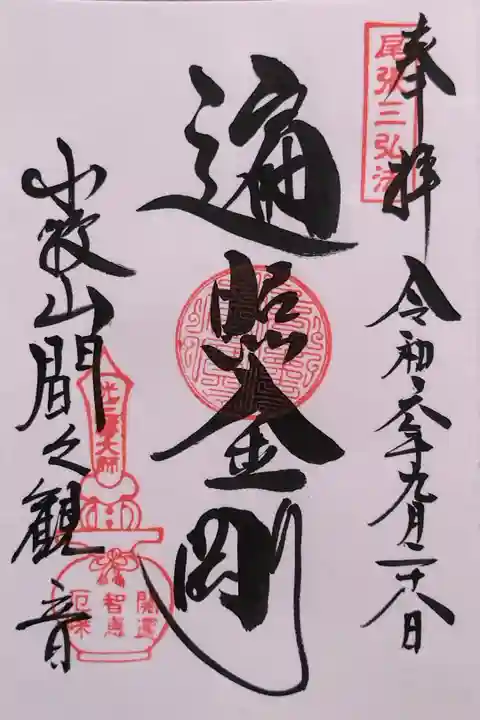 奉拝
尾張三弘法
令和六年九月二十八日
遍照金剛
小牧山間々観音
大師
開運
智恵
厄除